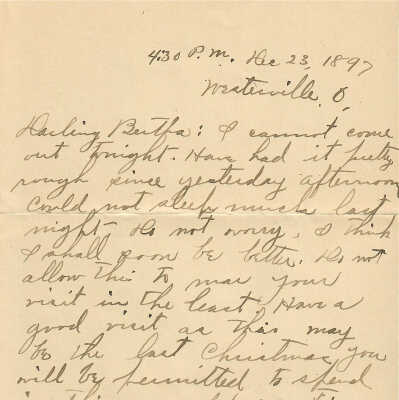 4:30 P.M. Dec 23, 1897
Westerville, O,
Darling Bertha: I cannot come
out tonight. Have had it pretty
rough since yesterday afternoon
could not sleep much last
night. Do not worry, I think
I shall soon be better. Do not
allow this to mar your
visit in the least. Have a
good visit as this may
be the last Christmas you
will be permitted to spend
in this